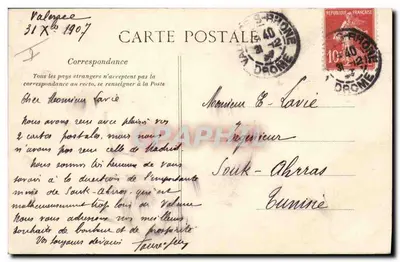 Valence
31 Xbre 1907
CARTE POSTALE
Correspondance
Tous les pays étrangers n'acceptent pas la
correspondance au recto, se renseigner à la Poste
RÉPUBLIQUE FRANÇAISE
10
VALENCE-S-RHONE
DROME
Cher Monsieur Lavie
Nous avons reçu avec plaisir vos
2 cartes postales, mais nous
n'avons pas reçu celle de Madrid
Nous sommes bien heureux de vous
savoir à la direction de l'importante
mine de Souk-Ahras, qui est
malheureusement trop loin de Valence
Nous vous adressons nos meilleurs
souhaits de bonheur et de prospérité
Vos toujours dévoués
Monsieur E. Lavie
Ingénieur
Souk-Ahras
Tunisie